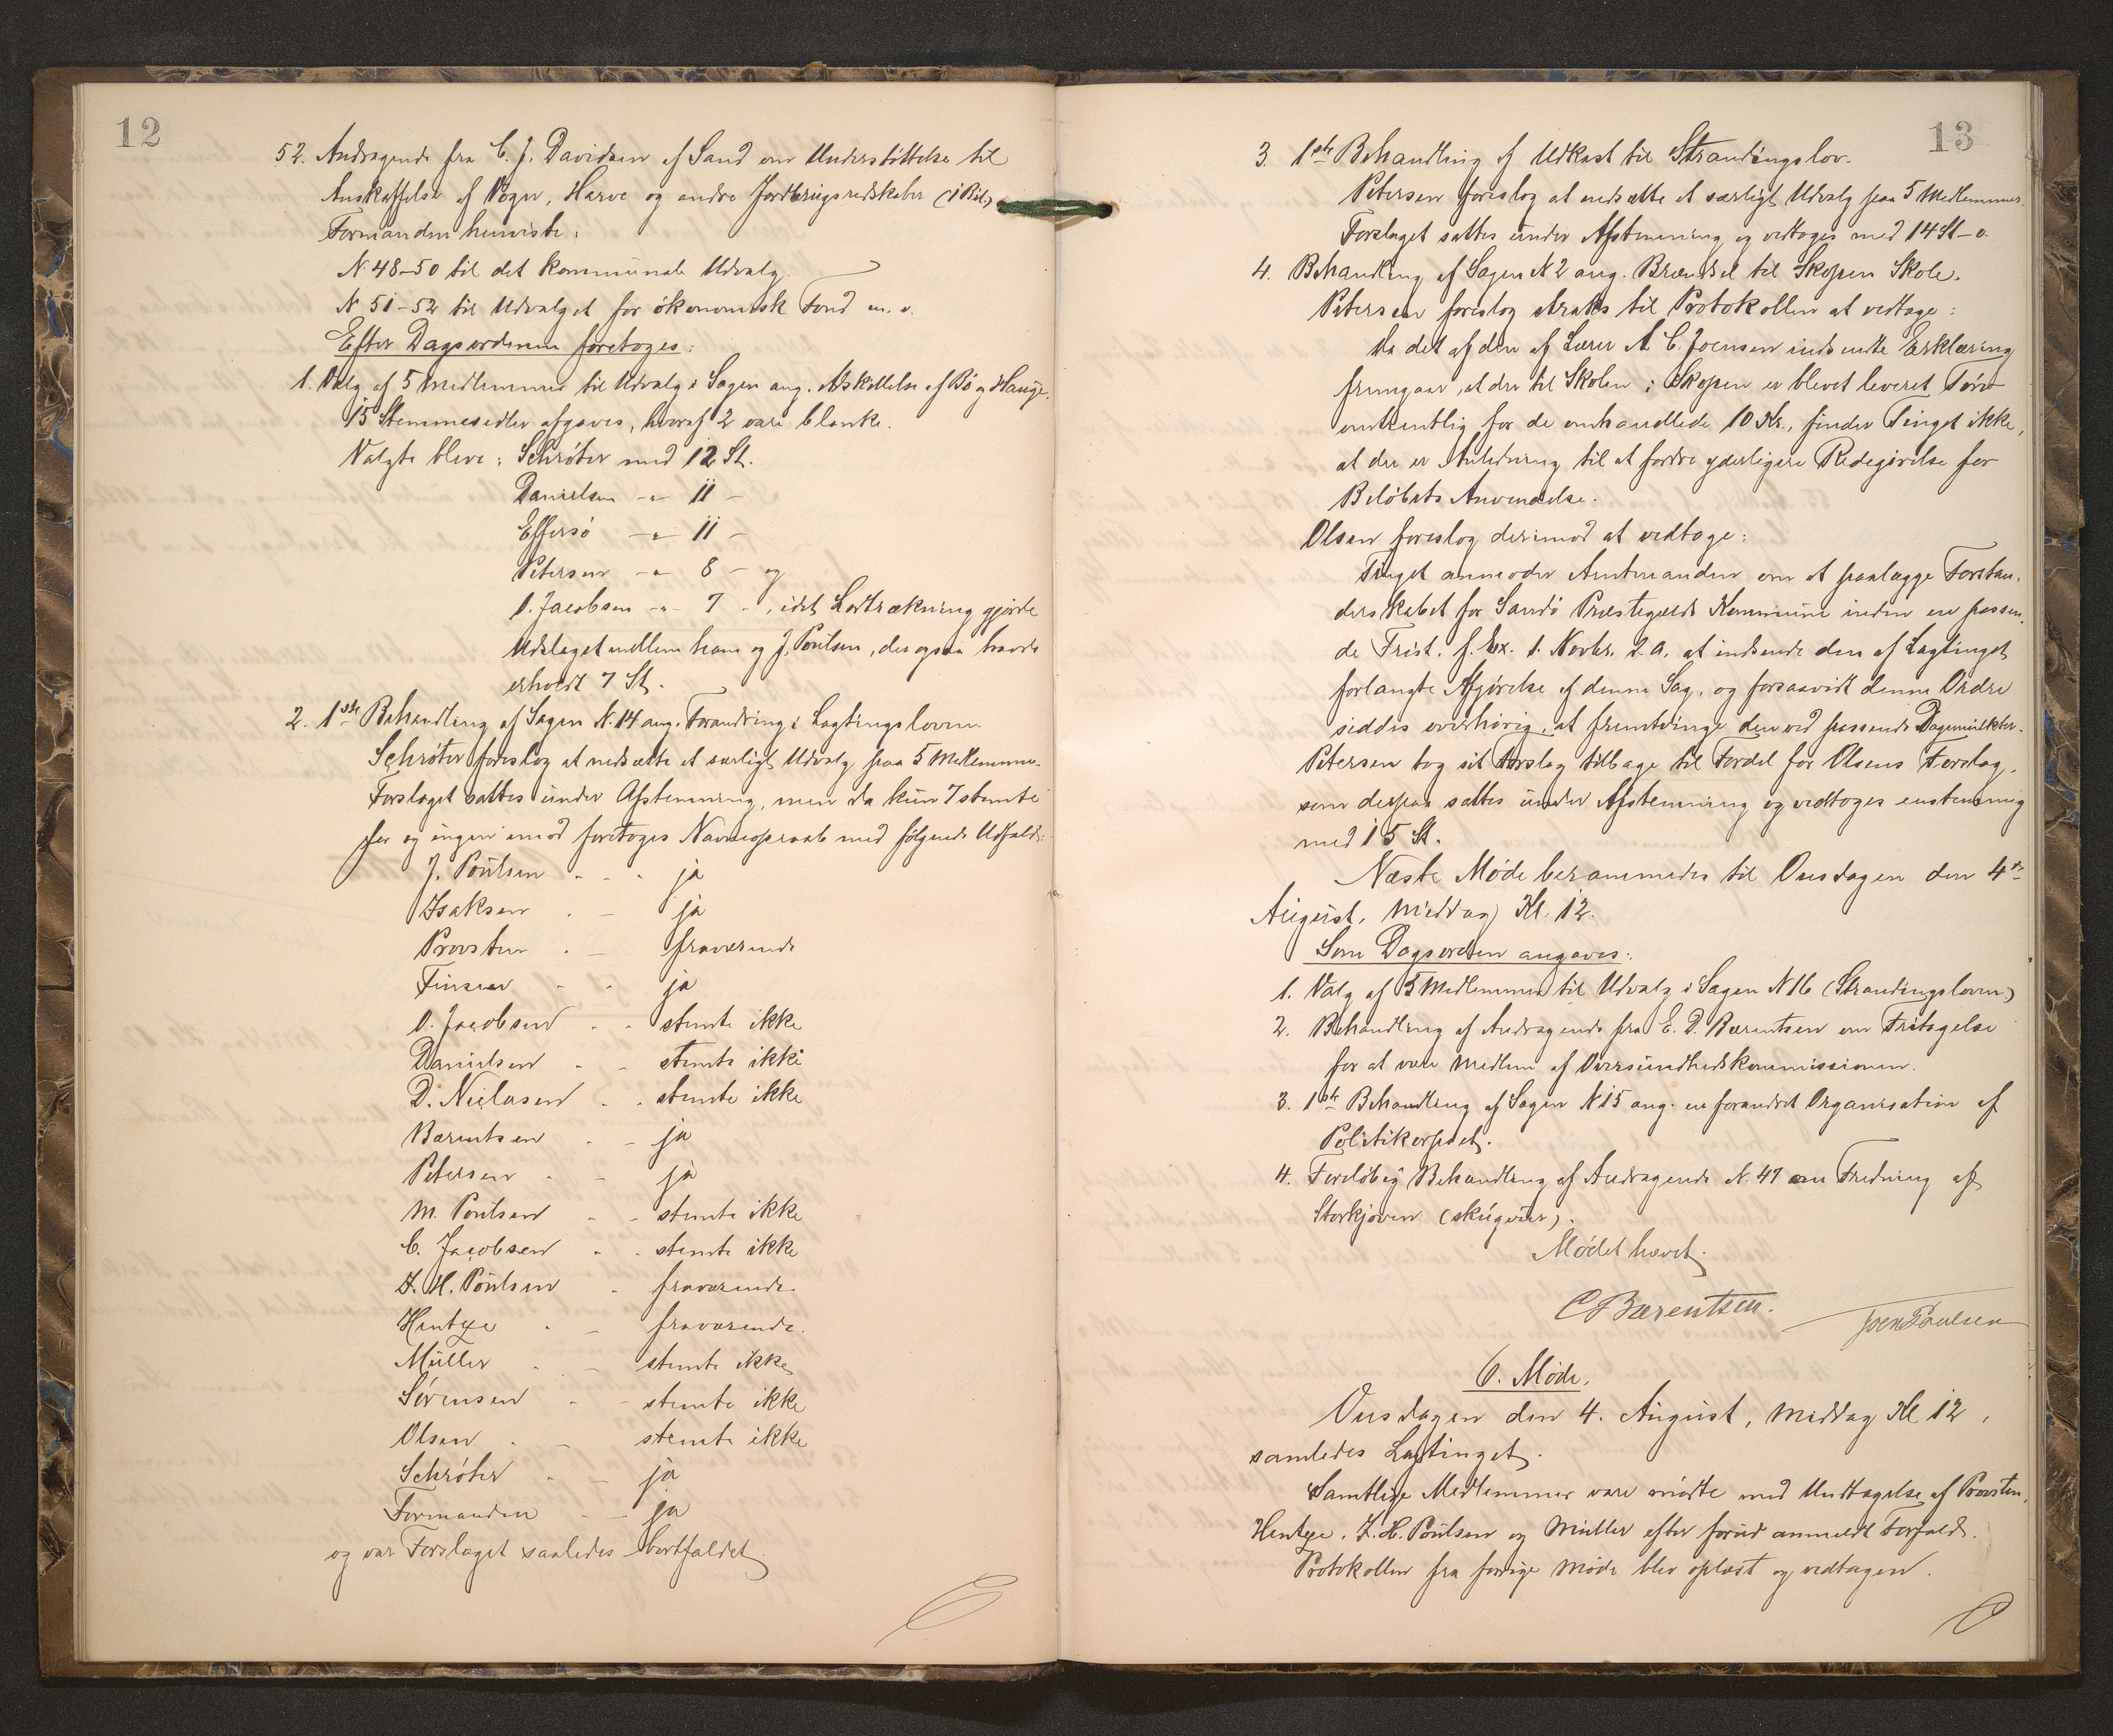 12
52. Andragende fra C. J. Davidsen af Sand om Understöttelse til
Anskaffelse af Vogn, Harve og andre Jordbrugsredskaber (1 Bil.)
Formanden henviste:
N. 48-50 til det kommunale Udvalg.
N. 51-52 til Udvalget for ökonomisk Fond m. v.
Efter Dagsordenen foretoges:
1. Valg af 5 Medlemmer til Udvalg i Sagen ang. Udskiftelse af Bø og Hauge.
15 Stemmesedler afgaves, hvoraf 2 vare blanke.
Valgte bleve: Schrøter med 12 St.
Danielsen -"- 11 -
Effersö -"- 11 -
Petersen -"- 8 - og
O. Jacobsen -"- 7 -, idet Lodtrækning gjorde
Udslaget mellem ham og J. Poulsen, der ogsaa havde
erholdt 7 St.
2. 1ste Behandling af Sagen N. 14 ang. Forandring i Lagtingsloven
Schrøter foreslog at nedsætte et særligt Udvalg paa 5 Medlemmer.
Forslaget sattes under Afstemning, men da kun 7 stemte
for og ingen imod foretoges Navneopraab med følgende Udfald:
J. Poulsen - - - ja
Isaksen - - ja
Provsten - - fraværende
Finsen - - ja
O. Jacobsen - - stemte ikke
Danielsen - - stemte ikke
D. Nielasen - - stemte ikke
Bærentsen - - ja
Petersen - - ja
M. Poulsen - - stemte ikke
C. Jacobsen - - stemte ikke
Z. H. Poulsen - fraværende
Hentze - - fraværende.
Müller - - stemte ikke
Sörensen - - stemte ikke
Olsen - - stemte ikke
Schrøter - - ja
Formanden - - ja
og var Forslaget saaledes bortfaldet.
13
3. 1ste Behandling af Udkast til Strandingslov.
Petersen foreslog at nedsætte et særligt Udvalg paa 5 Medlemmer.
Forslaget sattes under Afstemning og vedtoges med 14 St - 0.
4. Behandling af Sagen N 2 ang. Brændsel til Skopen Skole.
Petersen foreslog straks til Protokollen at vedtage:
Da det af den af Lærer A. C. Joensen indsendte Erklæring
fremgaar, at der til Skolen i Skopen er blevet leveret Törv
omtrentlig for de omhandlede 10 Kr., finder Tinget ikke,
at der er Anledning til at fordre yderligere Redegörelse for
Belöbets Anvendelse.
Olsen foreslog derimod at vedtage:
Tinget anmoder Amtmanden om at paalægge Forstan-
derskabet for Sandö Præstegælds Kommune inden en passen-
de Frist. f. Ex. 1. Novbr. d. A. at indsende den af Lagtinget
forlangte Afgörelse af denne Sag, og forsaavidt denne Ordre
siddes overhörig, at fremtvinge den ved passende Dagmulkter.
Petersen tog sit Forslag tilbage til Fordel for Olsens Forslag,
som derpaa sattes under Afstemning og vedtoges enstemmig
med 15 St.
Næste Möde berammedes til Onsdagen den 4de
August, Middag Kl. 12.
Som Dagsorden angaves:
1. Valg af 5 Medlemmer til Udvalg i Sagen N 16 (Strandingsloven)
2. Behandling af Andragende fra E. D. Bærentsen om Fritagelse
for at være Medlem af Oversundhedskommissionen.
3. 1ste Behandling af Sagen N 15 ang. en forandret Organisation af
Politikorpset.
4. Forelöbig Behandling af Andragende N. 47 om Fredning af
Storkjoven (skúgvur).
Mödet hævet.
C Bærentsen.
Joen Poulsen
6. Möde.
Onsdagen den 4. August, Middag Kl 12,
samledes Lagtinget.
Samtlige Medlemmer vare mödte med Undtagelse af Provsten,
Hentze, Z. H. Poulsen og Müller efter forud anmeldt Forfald.
Protokollen fra forrige Möde blev oplæst og vedtagen.